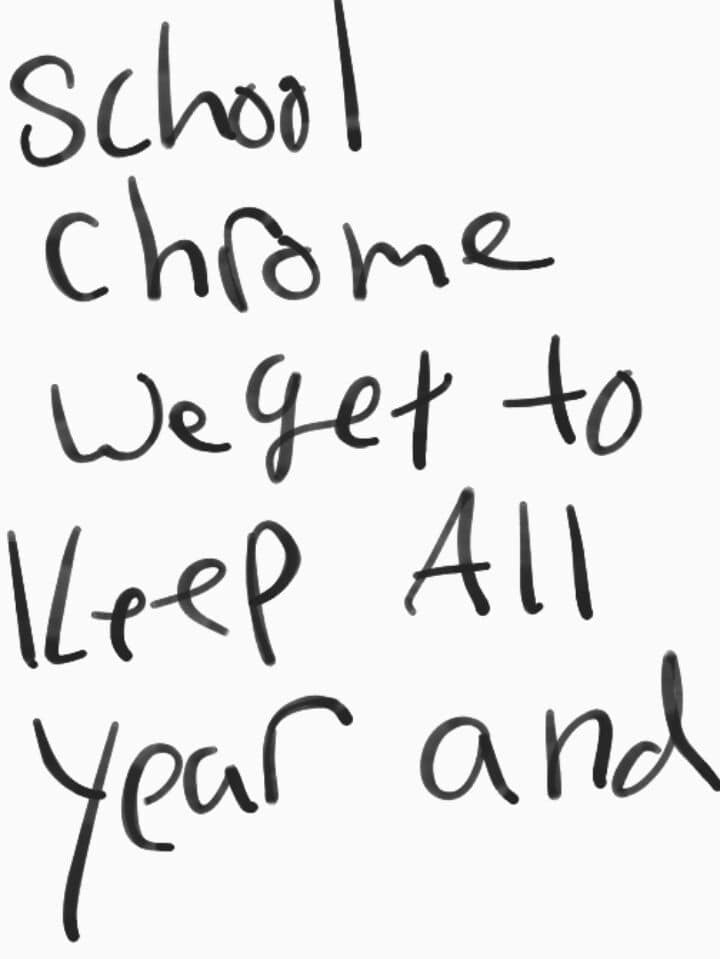 School
chrome
we get to
Keep All
year and